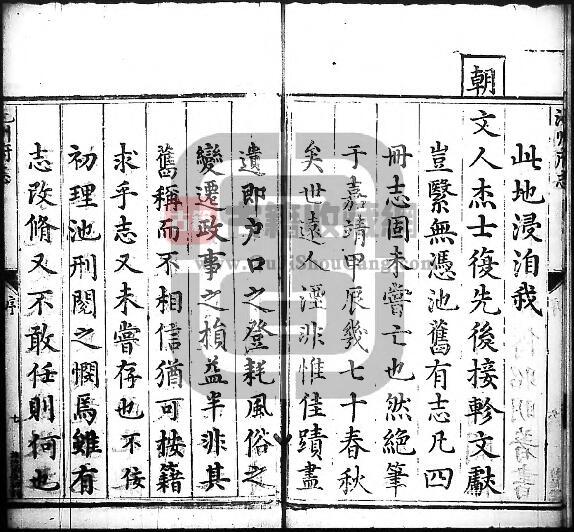 此地浸洎我
朝
文人杰士復先後接軫文獻
豈繄無憑池舊有志凡四
冊志固未嘗亡也然絕筆
于嘉靖甲辰幾七十春秋
矣世遠人湮非惟佳蹟盡
遺即户口之登耗風俗之
變遷政事之損益半非其
舊稱而不相信猶可按籍
求乎志又未嘗存也不佞
初理池刑閱之憫焉雖有
志改脩又不敢任則何也
序